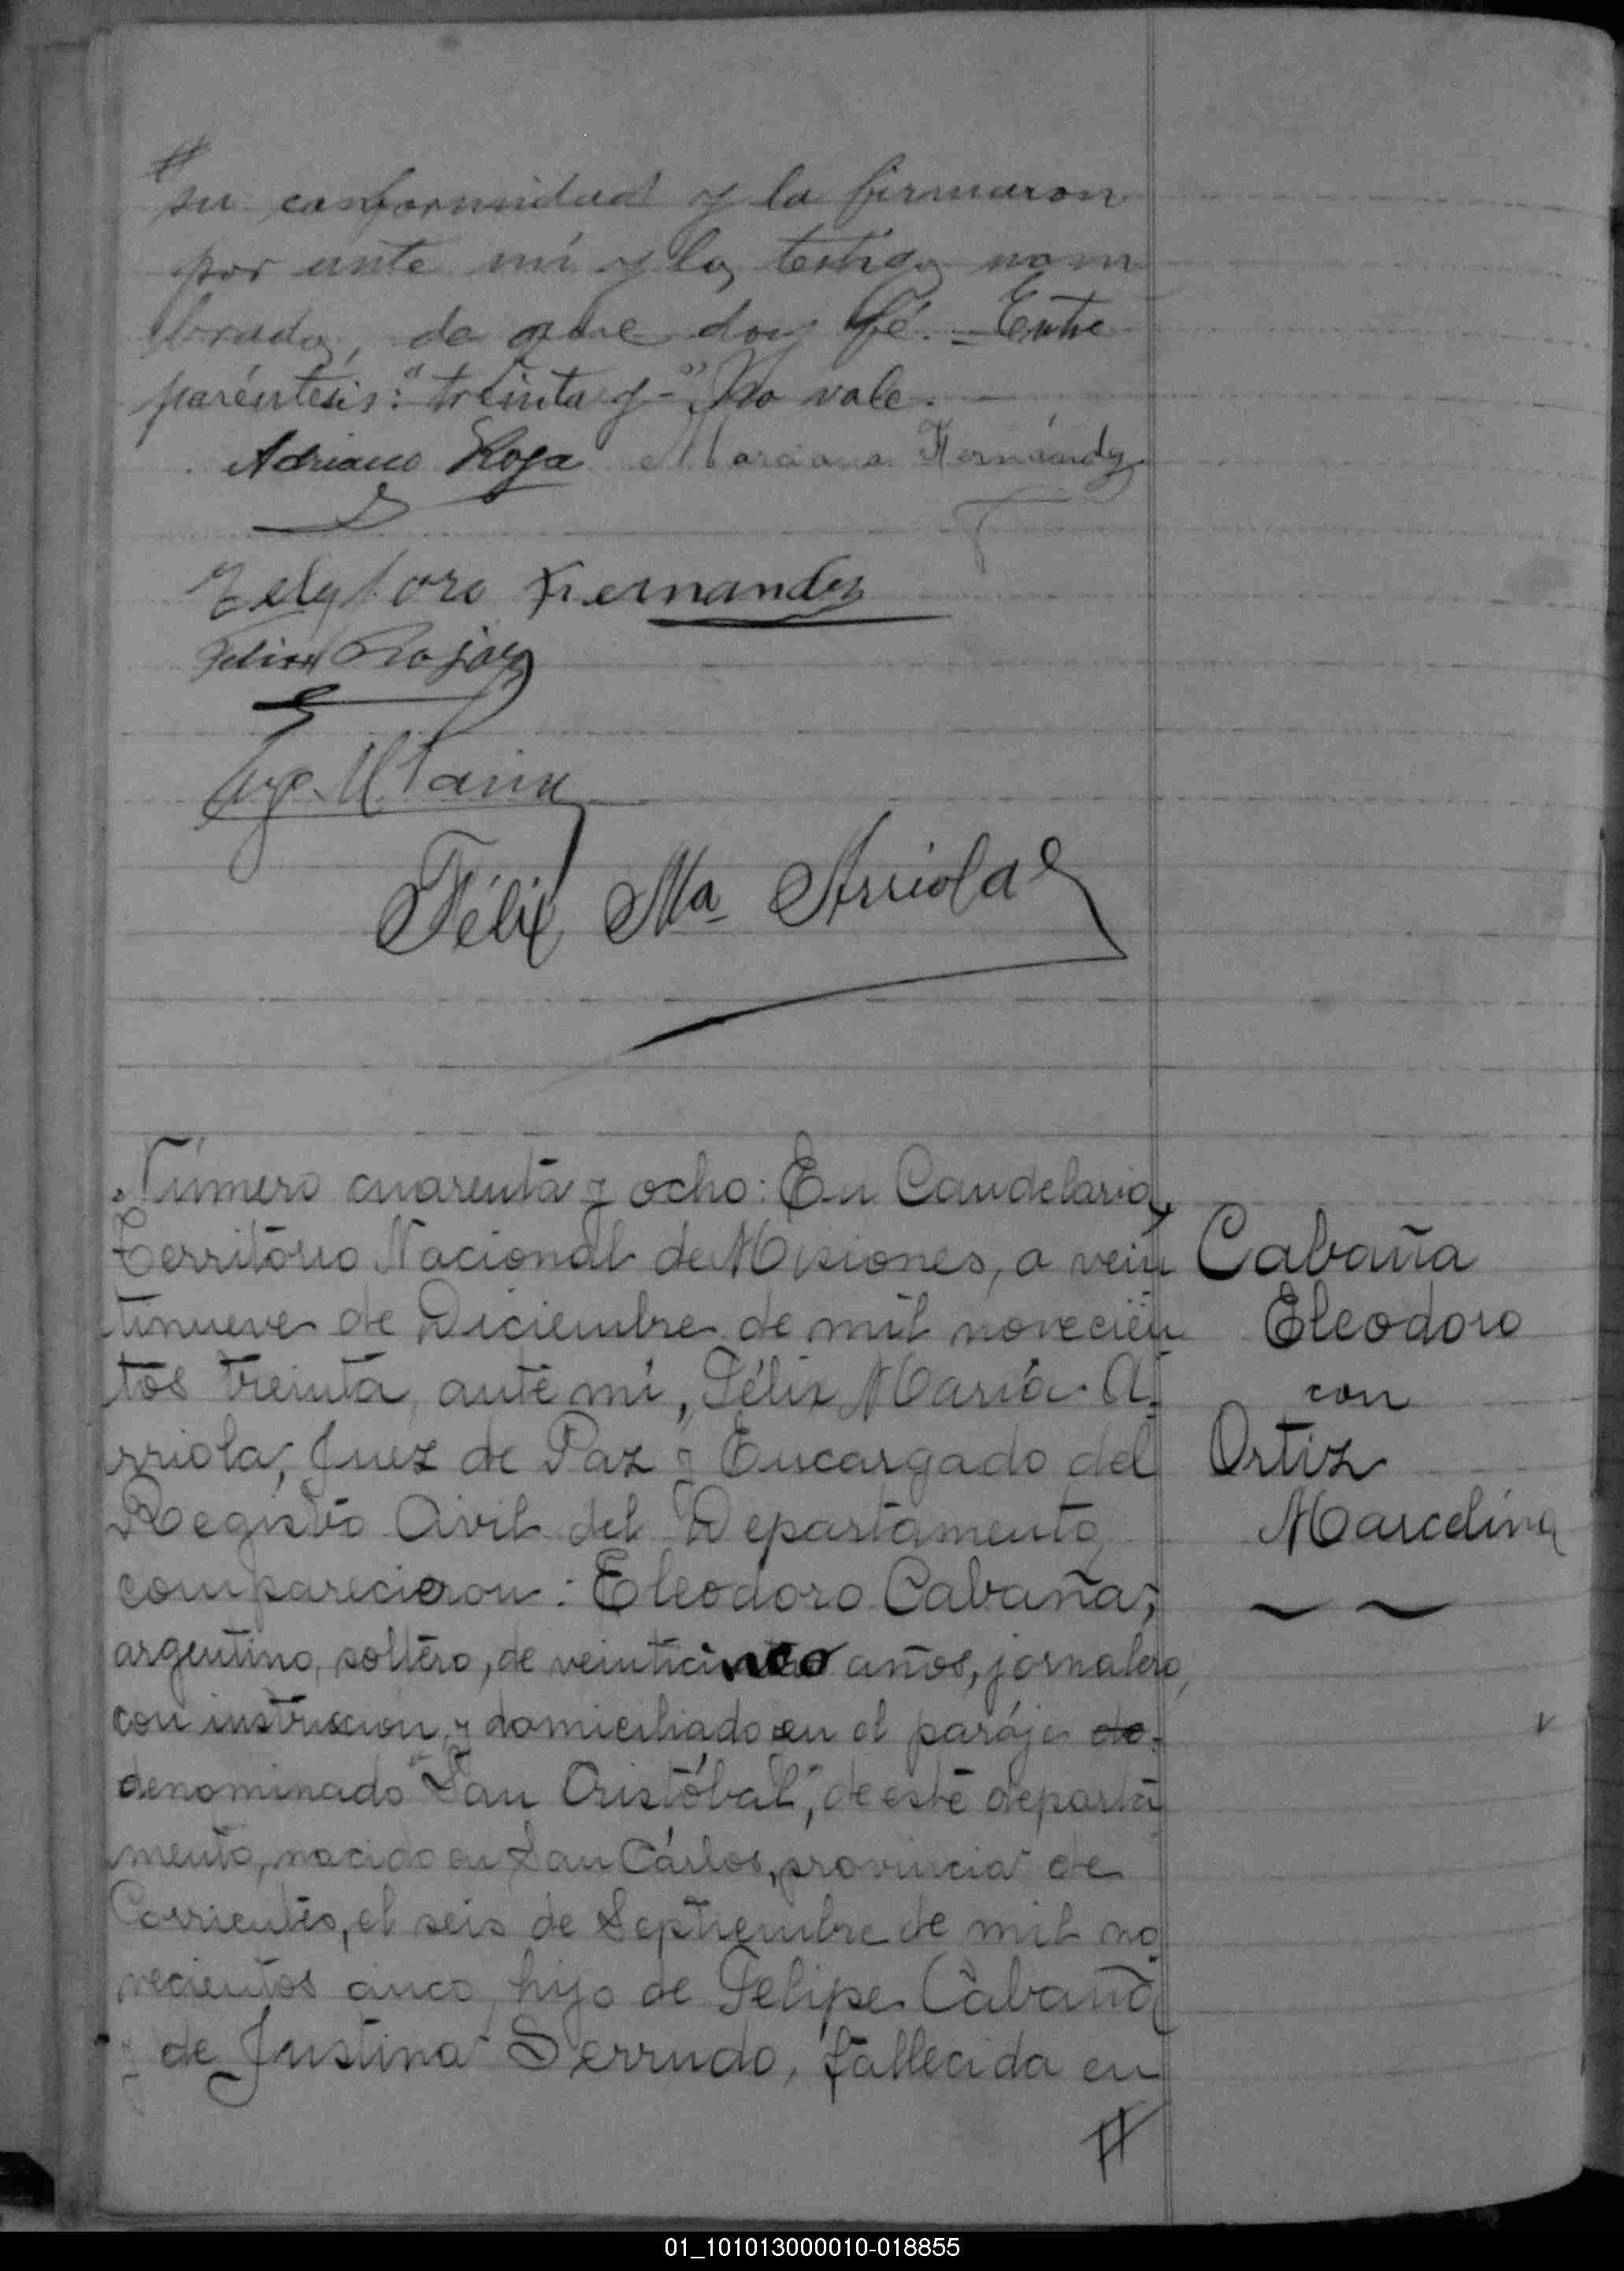 #
su conformidad y la firmaron
por ante mí y los testigos nom
brados, de que doy fé. - Entre
paréntesis: "treinta y -" No vale. -
Adriano Roja Marciana Hernández
Telesforo Fernandez
Felix Rojas
Félix Ma Arriola
Número cuarenta y ocho: En Candelaria,
Territorio Nacional de Misiones, a vein
tinueve de Diciembre de mil novecien
tos treinta, ante mí, Félix María A.
rriola, Juez de Paz y Encargado del
Registro Civil del Departamento,
comparecieron: Eleodoro Cabaña,
argentino, soltero, de veinticinco años, jornalero,
con instrucción, y domiciliado en el paraje de.
denominado "San Cristóbal", de este departa
mento, nacido en San Cárlos, provincia de
Corrientes, el seis de Septiembre de mil no
vecientos cinco, hijo de Felipe Cabaña
y de Justina Serrudo, fallecida en
#
Cabaña
Eleodoro
con
Ortiz
Marcelina
01_101013000010-018855